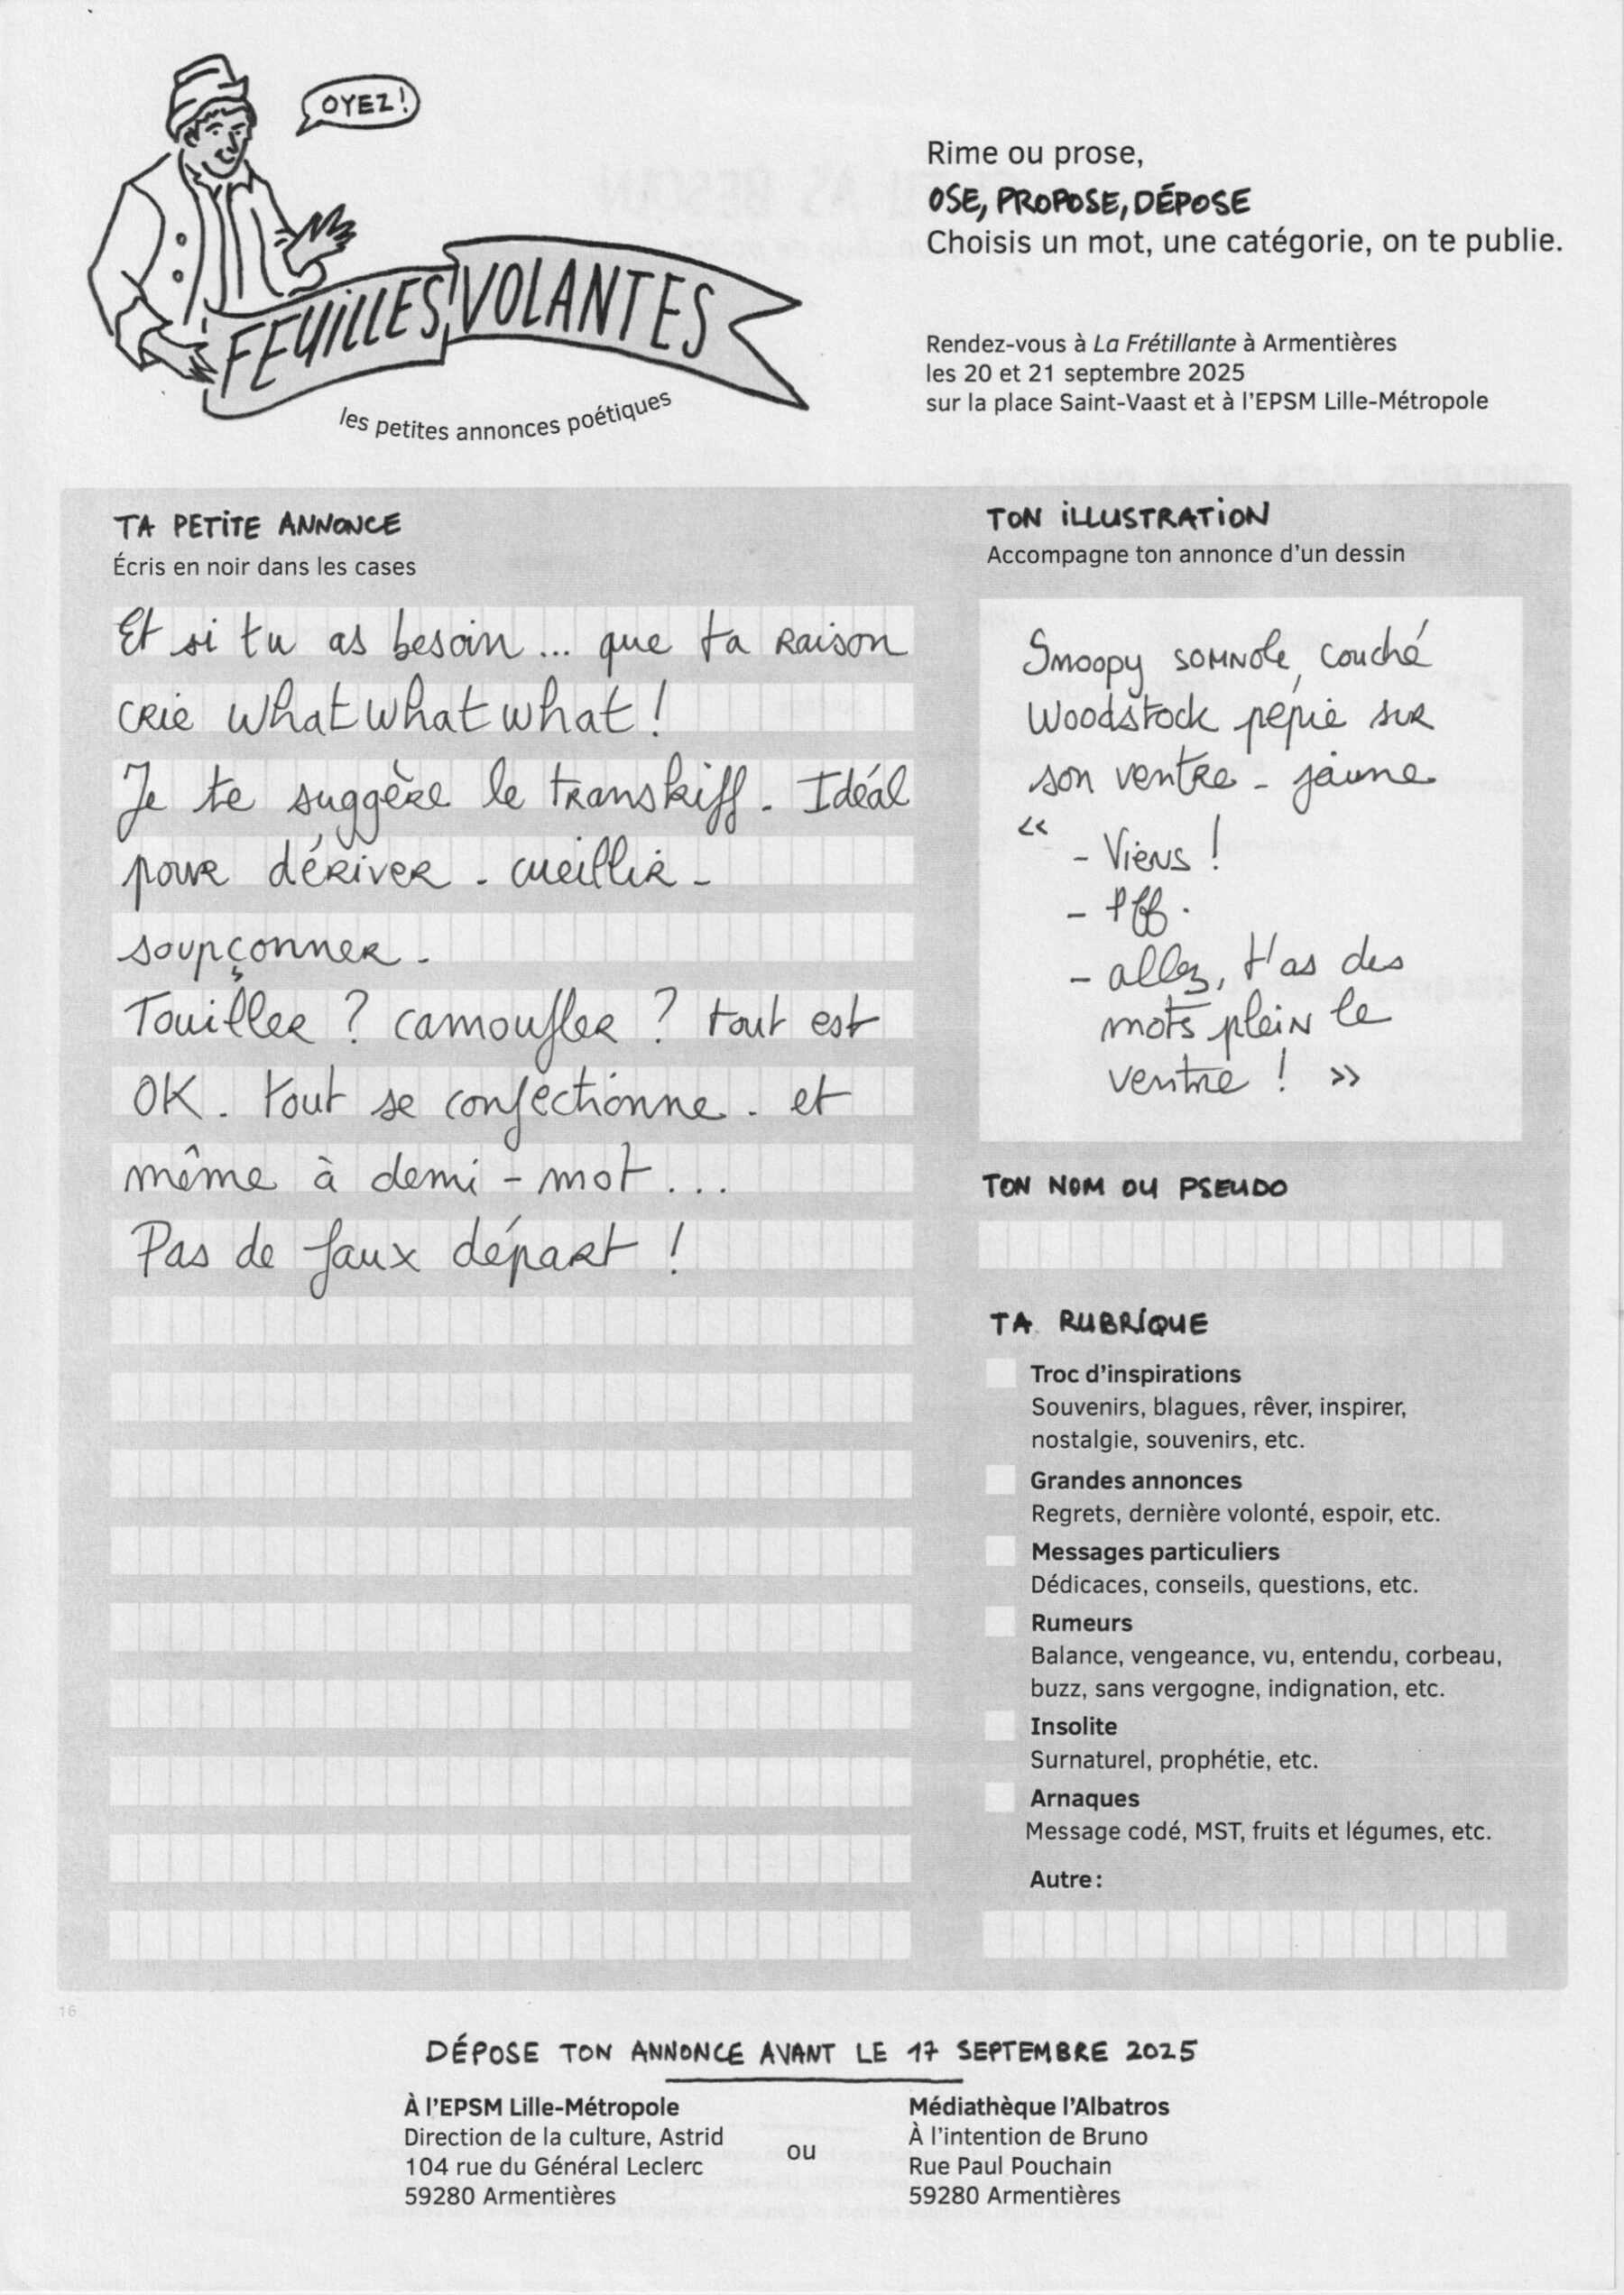 OYEZ!
FEUILLES VOLANTES
les petites annonces poétiques
Rime ou prose,
OSE, PROPOSE, DÉPOSE
Choisis un mot, une catégorie, on te publie.
Rendez-vous à La Frétillante à Armentières
les 20 et 21 septembre 2025
sur la place Saint-Vaast et à l'EPSM Lille-Métropole
TA PETITE ANNONCE
Écris en noir dans les cases
Et si tu as besoin... que ta raison
crie whatwhatwhat !
Je te suggère le transkiff. Idéal
pour dériver. cueillir -
soupçonner.
Touiller ? camoufler ? tout est
OK. tout se confectionne. et
même à demi-mot...
Pas de faux départ !
TON ILLUSTRATION
Accompagne ton annonce d'un dessin
Snoopy somnole, couché
Woodstock pépie sur
son ventre - jaune
« - Viens !
- Pff.
- allez, t'as des
mots plein le
ventre ! »
TON NOM OU PSEUDO
TA RUBRIQUE
Troc d'inspirations
Souvenirs, blagues, rêver, inspirer,
nostalgie, souvenirs, etc.
Grandes annonces
Regrets, dernière volonté, espoir, etc.
Messages particuliers
Dédicaces, conseils, questions, etc.
Rumeurs
Balance, vengeance, vu, entendu, corbeau,
buzz, sans vergogne, indignation, etc.
Insolite
Surnaturel, prophétie, etc.
Arnaques
Message codé, MST, fruits et légumes, etc.
Autre :
16
DÉPOSE TON ANNONCE AVANT LE 17 SEPTEMBRE 2025
À l'EPSM Lille-Métropole
Direction de la culture, Astrid
104 rue du Général Leclerc
59280 Armentières
ou
Médiathèque l'Albatros
À l'intention de Bruno
Rue Paul Pouchain
59280 Armentières